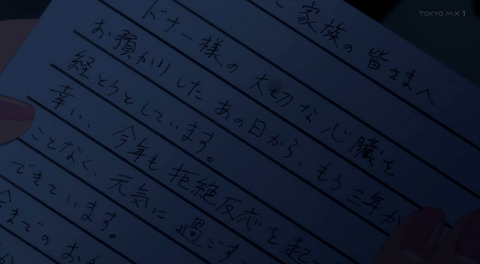 TOKYO MX 1
ご家族の皆さまへ
ドナー様の大切な心臓を
お預かりしたあの日から、もう三年が
経とうとしています。
幸い、今年も拒絶反応を起こ
ことなく、元気に過ごす
できています。
今までの